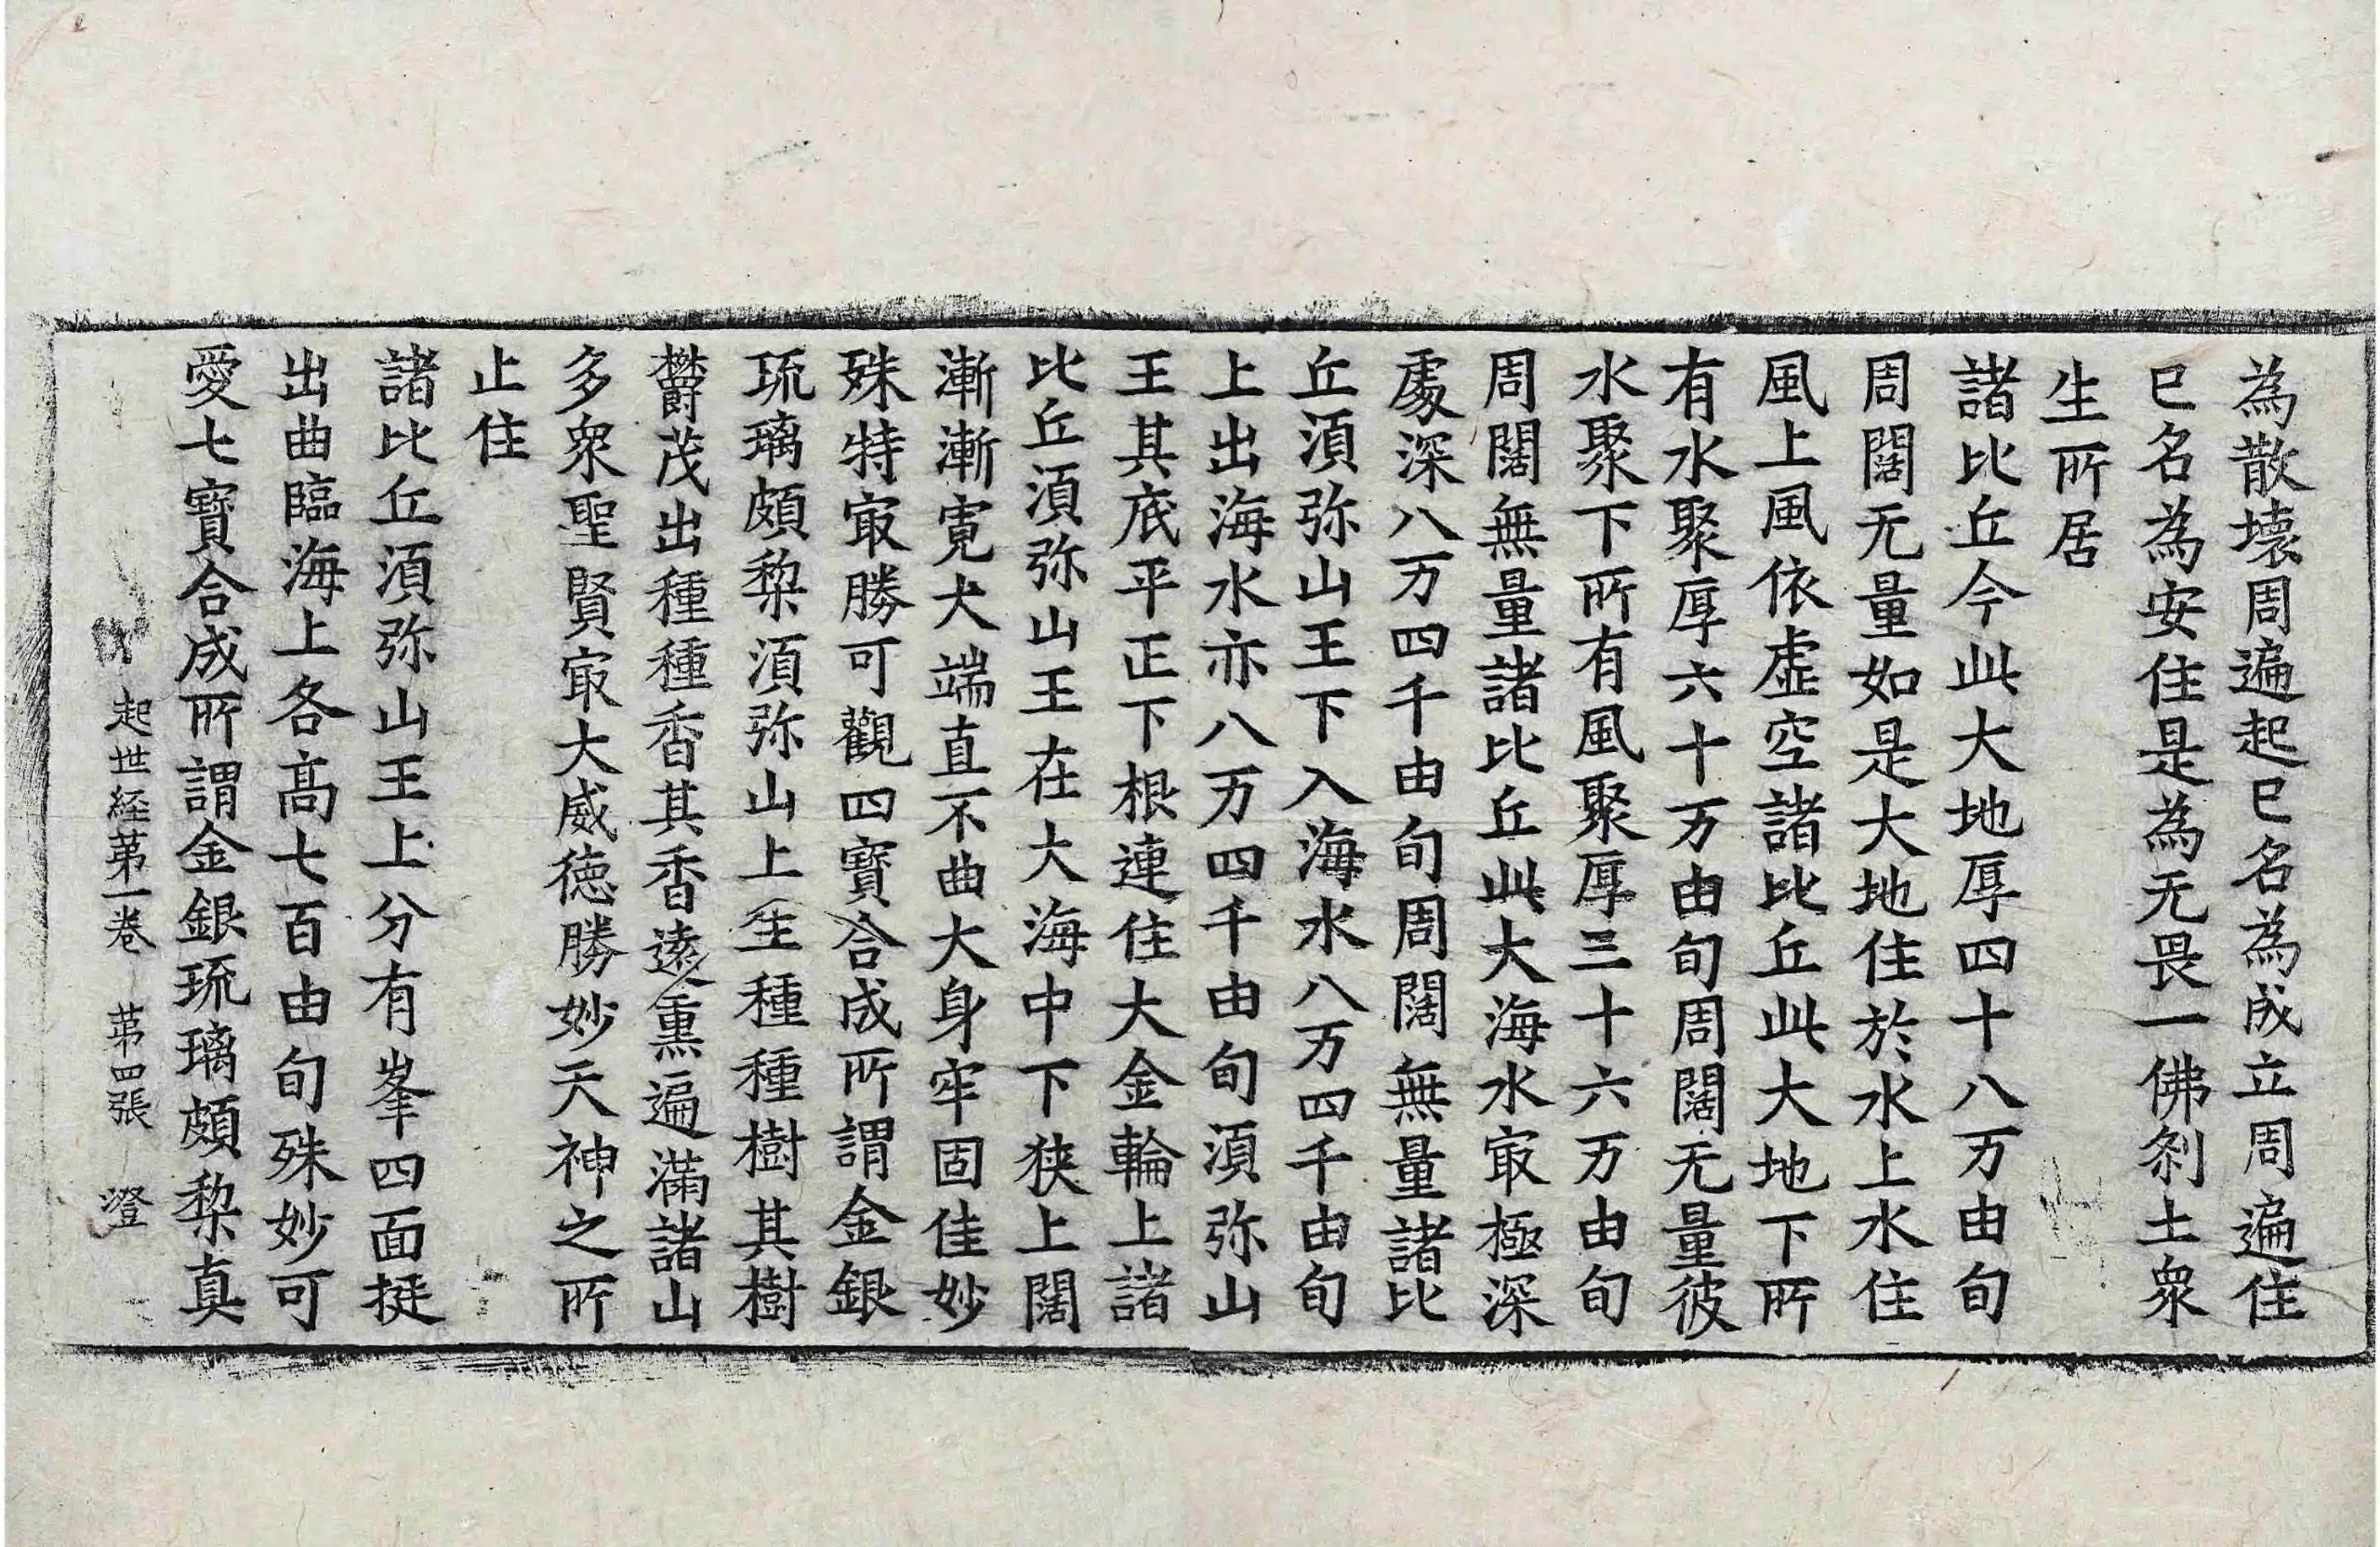 為散壞周遍起已名為成立周遍住
已名為安住是為无畏一佛刹土衆
生所居
諸比丘今此大地厚四十八万由旬
周闊无量如是大地住於水上水住
風上風依虛空諸比丘此大地下所
有水聚厚六十万由旬周闊无量彼
水聚下所有風聚厚三十六万由旬
周闊無量諸比丘此大海水㝡極深
處深八万四千由旬周闊無量諸比
丘湏弥山王下入海水八万四千由旬
上出海水亦八万四千由旬湏弥山
王其底平正下根連住大金輪上諸
比丘湏弥山王在大海中下狹上闊
漸漸寛大端直不曲大身牢固佳妙
殊特㝡勝可觀四寶合成所謂金銀
琉璃頗梨湏弥山上生種種樹其樹
欝茂出種種香其香遠熏遍滿諸山
多衆聖賢㝡大威德勝妙天神之所
止住
諸比丘湏弥山王上分有峯四面挺
出曲臨海上各高七百由旬殊妙可
愛七寶合成所謂金銀琉璃頗梨真
起世経苐一卷 苐四張 澄